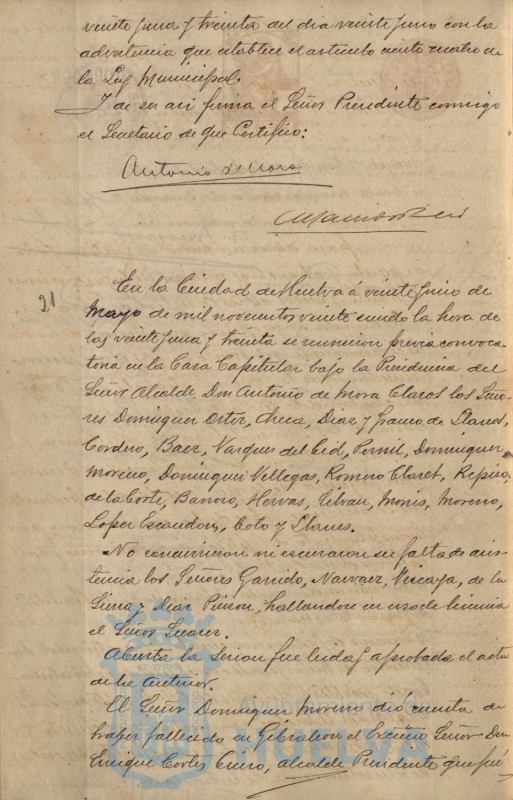 veinte y una y treinta del dia veinte y uno con la
advertencia que establece el articulo ciento cuatro de
la Ley Municipal.
Y de ser asi firma el Señor Presidente conmigo
el Secretario de que Certifico:
Antonio de Mora
21
En la Ciudad de Huelva á veinte y uno de
Mayo de mil novecientos veinte siendo la hora de
las veinte y una y treinta se reunieron previa convoca
toria en la Casa Capitular bajo la Presidencia del
Señor Alcalde Don Antonio de Mora Claros los Seño-
res Dominguez Ortiz, Checa, Diaz y Franco de Llanos,
Cordero, Baez, Vazquez del Cid, Pomil, Dominguez
Moreno, Dominguez Villegas, Romero Claret, Repiso,
de la Corte, Barroso, Hervas, Monis, Moreno,
Lopez Escandon, Coto y Llanes.
No concurrieron ni escusaron su falta de asis
tencia los Señores Garrido, Narvaez, Vizcaya, de la
Sierra y Diaz Pinzon, hallandose en uso de licencia
el Señor Suarez.
Abierta la sesion fue leida y aprobada el acta
de la anterior.
El Señor Dominguez Moreno dió cuenta de
haber fallecido en Gibraleon el Excmo Señor Don
Enrique Cortes, Alcalde Presidente que fué
HUELVA